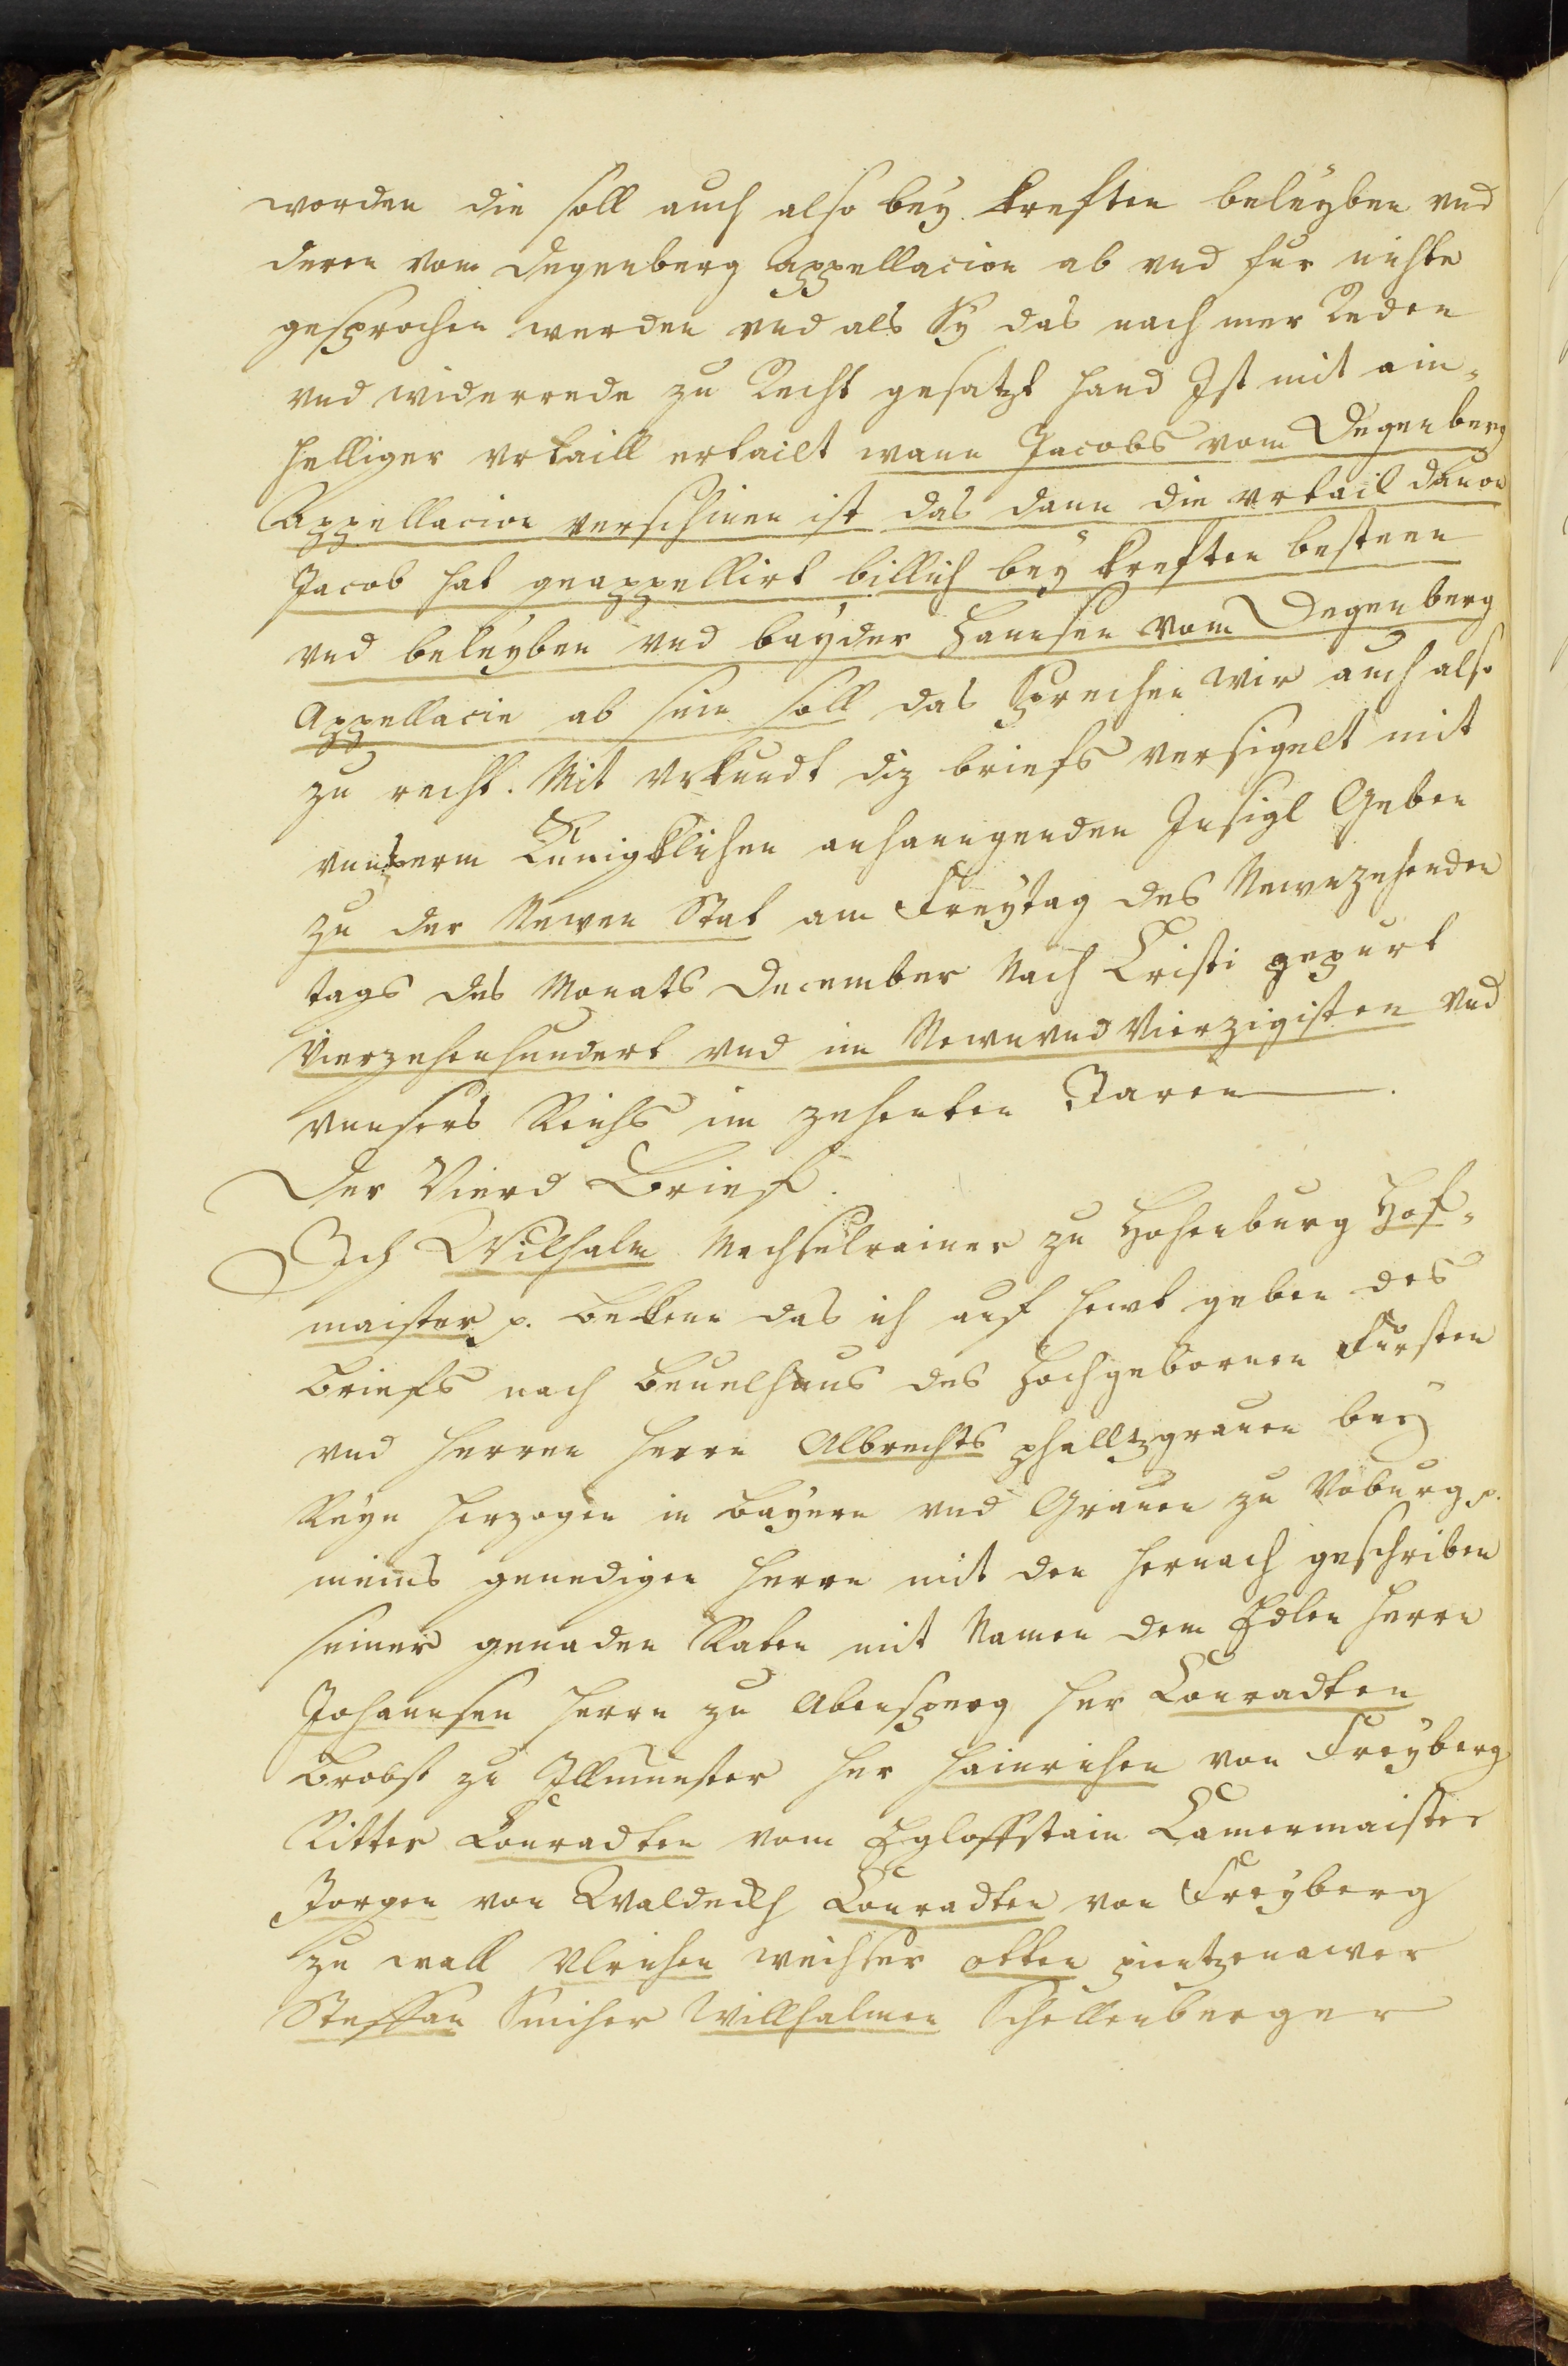 worden die soll auch also bey kreften beleyben vnd
deren vom Degenberg Appellacion ab vnd fur nichte
gesprochen werden vnd als Sy das nach mer Reden
vnd widerrede zu Recht gesatzt hand Ist mit ain-
helliger vrtaill ertailt wann Jacobs vom Degenberg
Appellacion verschinen ist das dann die vrtail dauon
Jacob hat geappellirt billich bey kreften besteen
vnd beleyben vnd bayder Hannsen vom Degenberg
Appellacie ab sein soll das Sprechen wir auch also
zu recht. Mit Vrkundt diz briefs versigelt mit
vnnserm Kunigklichen anhanngenden Insigl Geben
zu der Newen Stat am Freytag des Newnzehenden
tags des Monats December Nach Cristi gepurt
Vierzehenhundert vnd im Newnvnd Vierzigisten Vnd
vnnsers Reichs im zehenten Jaren
Der Vierd Brief.
Ich Wilhalm Machselrainer zu Hohenburg Hof-
maister p. bekenn das ich auf hewt geben des
Briefs nach Beuelhnus des Hochgebornen Fürsten
vnd Herren Herrn Albrechts phalltzgrauen bey
Reyn Herzogen in Bayern vnd Grauen zu Voburg p.
meins genedigen Herrn mit den hernach geschriben
seiner genaden Raten mit Namen dem Edlen Herrn
Johannsen Herrn zu Abensperg her Conradten
Brobst zu Illmunster her Hainrichen von Freyberg
Ritter Conradten vom Egloffstain Camermaister
Jorgen von Waldeckh Conradten von Freyberg
zu wall Vlrichen weichser otten pientzenawer
Steffan Smiher Willhalmen Schellenberger